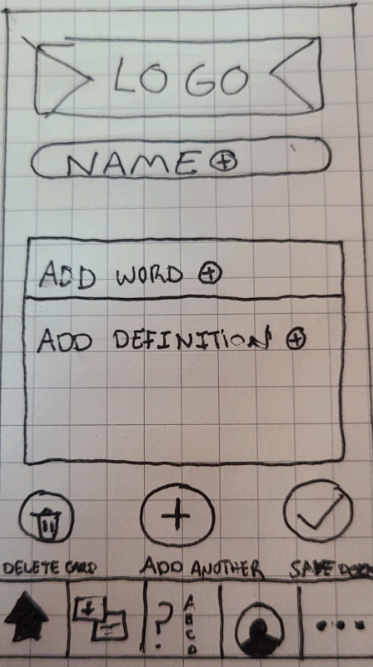 LOGO
NAME
ADD WORD
ADD DEFINITION
DELETE CARD
ADD ANOTHER
SAVE
?
A
B
C
D
...